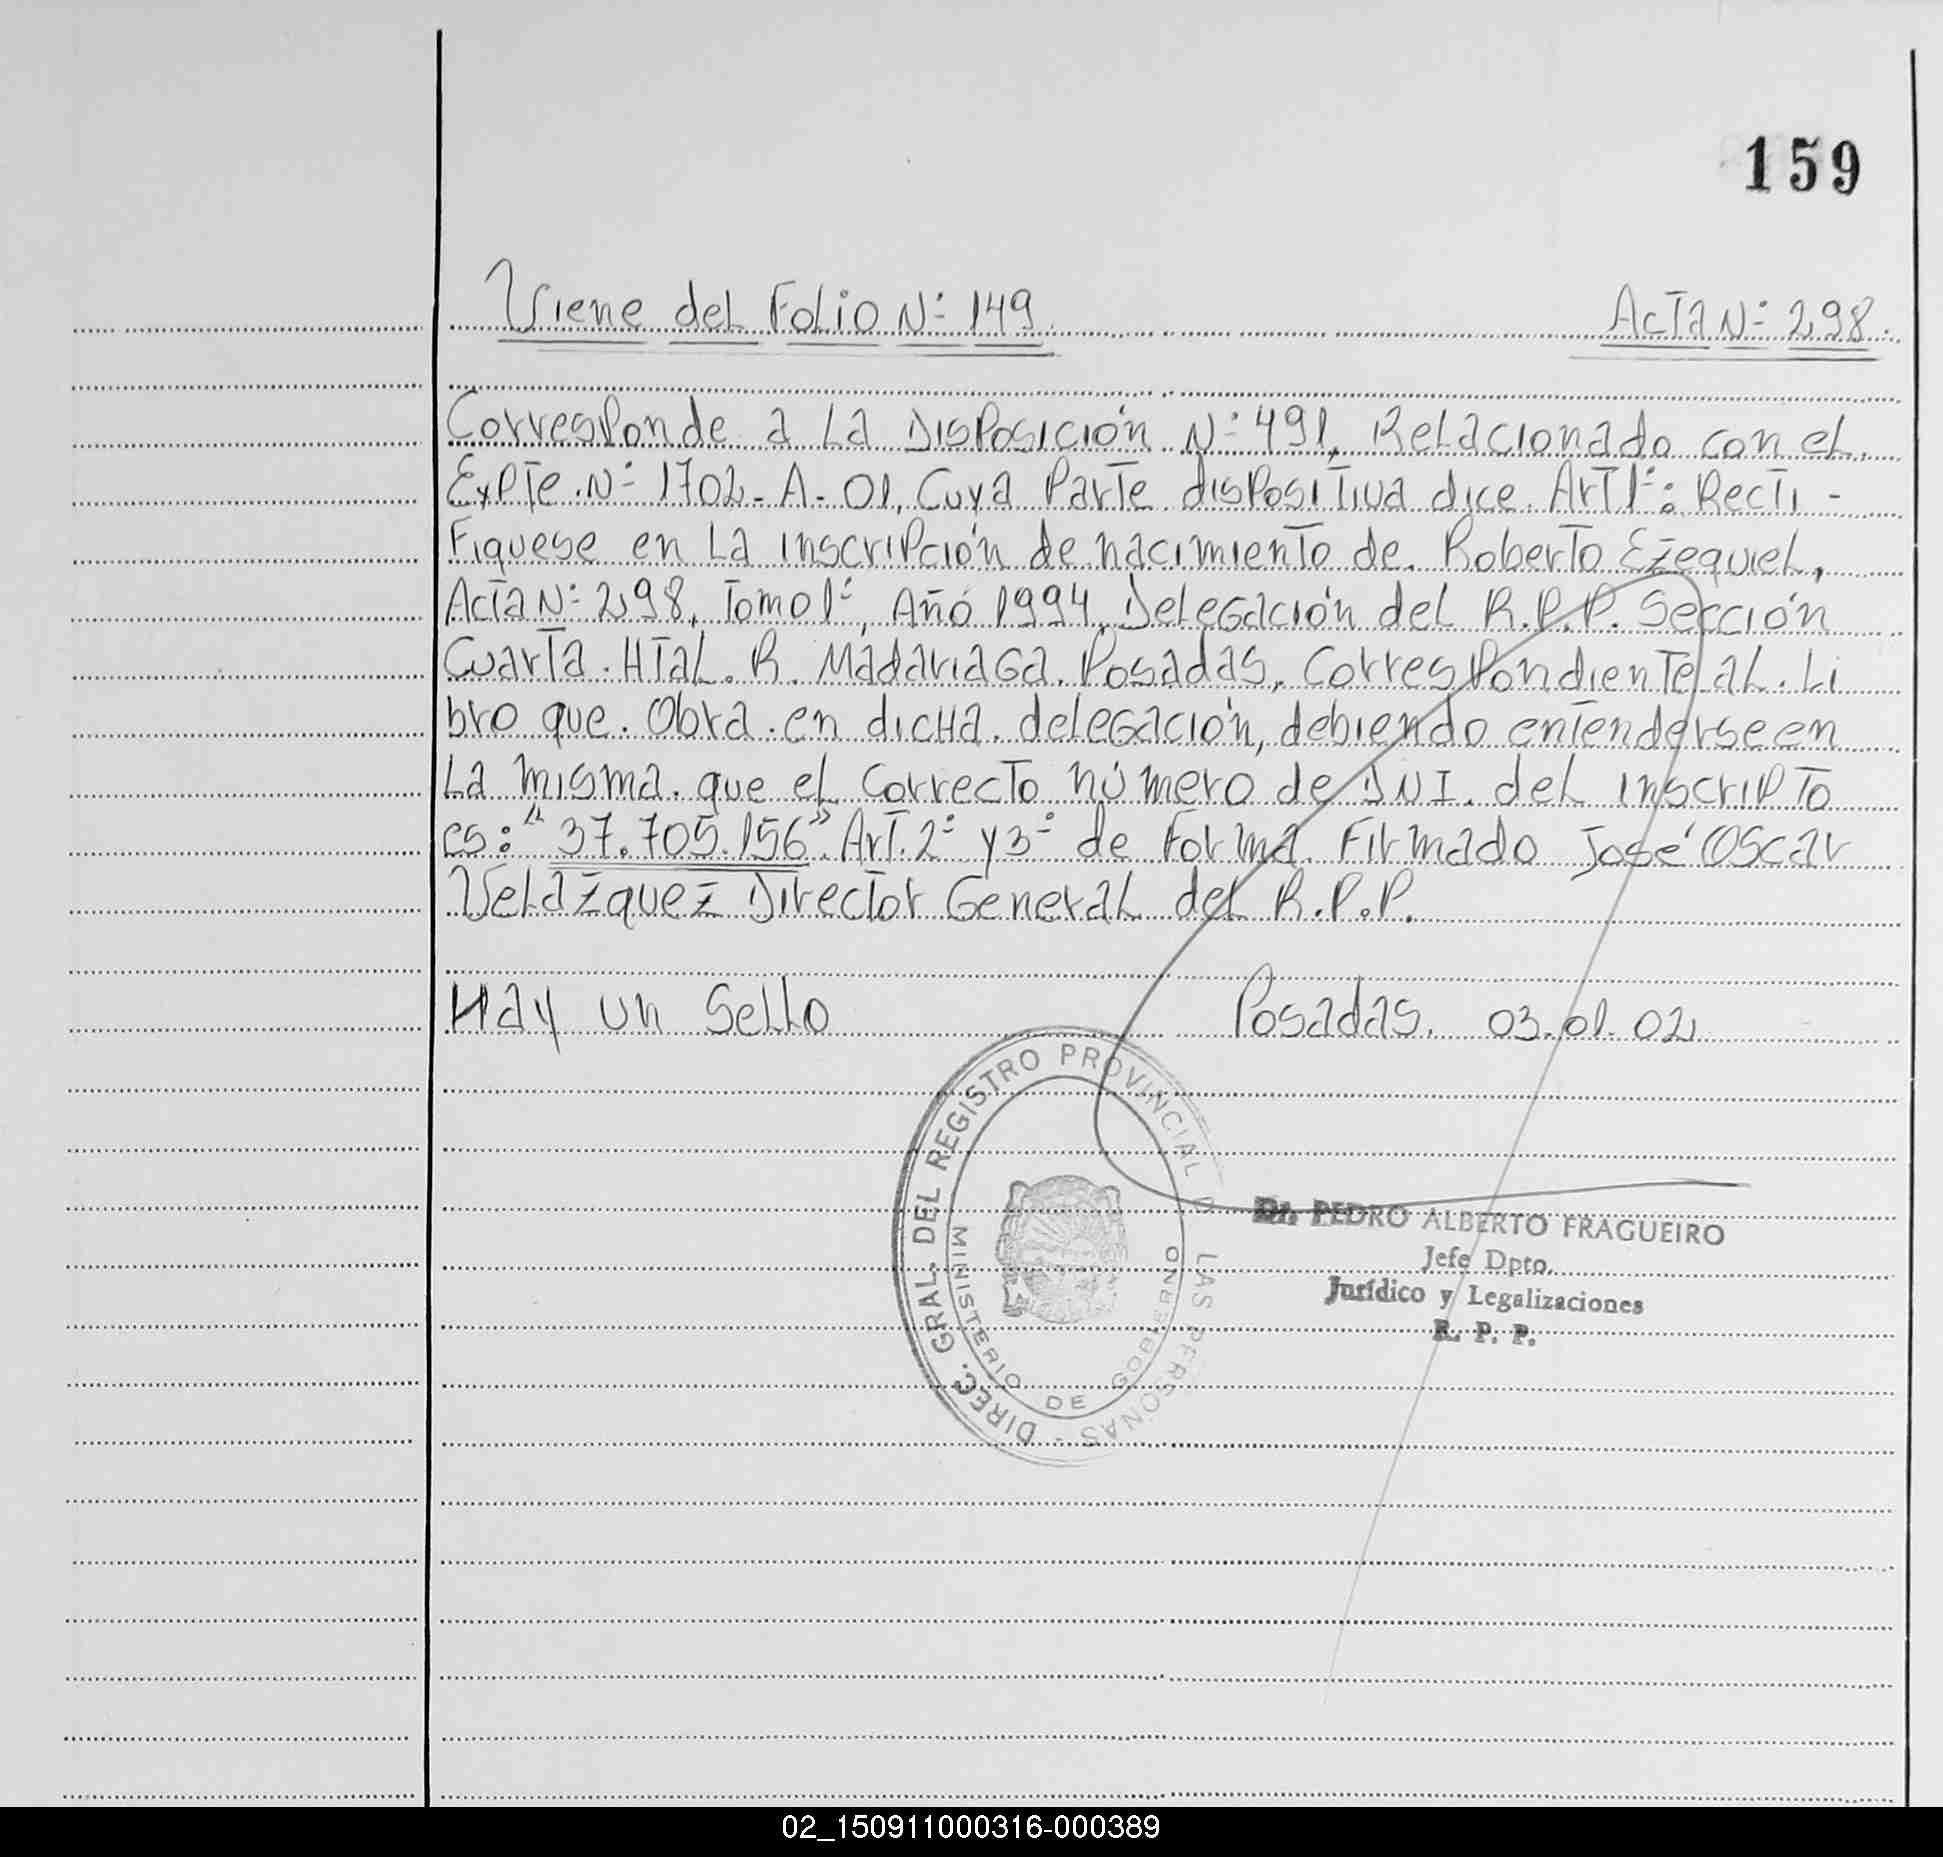 159
Viene del Folio Nº 149 Acta Nº 298.
Corresponde a la Disposición Nº 491, Relacionado con el
Expte. Nº 1702-A-01, Cuya Parte dispositiva dice. Art 1º: Recti-
Fiquese en la inscripción de nacimiento de. Roberto Ezequiel,
Acta Nº 298, Tomo 1º, Año 1994, Delegación del R.P.P. Sección
Cuarta. Htal. R. Madariaga. Posadas, Correspondiente al. Li
bro que. Obra. en dicha. delegación, debiendo entenderse en
la misma. que el Correcto número de DNI. del inscripto
es: "37.705.156". Art. 2º y 3º de Forma. Firmado José Oscar
Velazquez Director General del R.P.P.
Hay un Sello Posadas. 03.01.02
DIREC. GRAL. DEL REGISTRO PROVINCIAL D LAS PERSONAS -
MINISTERIO DE GOBIERNO
Dr. PEDRO ALBERTO FRAGUEIRO
Jefe Dpto.
Jurídico y Legalizaciones
R. P. P.
02_150911000316-000389